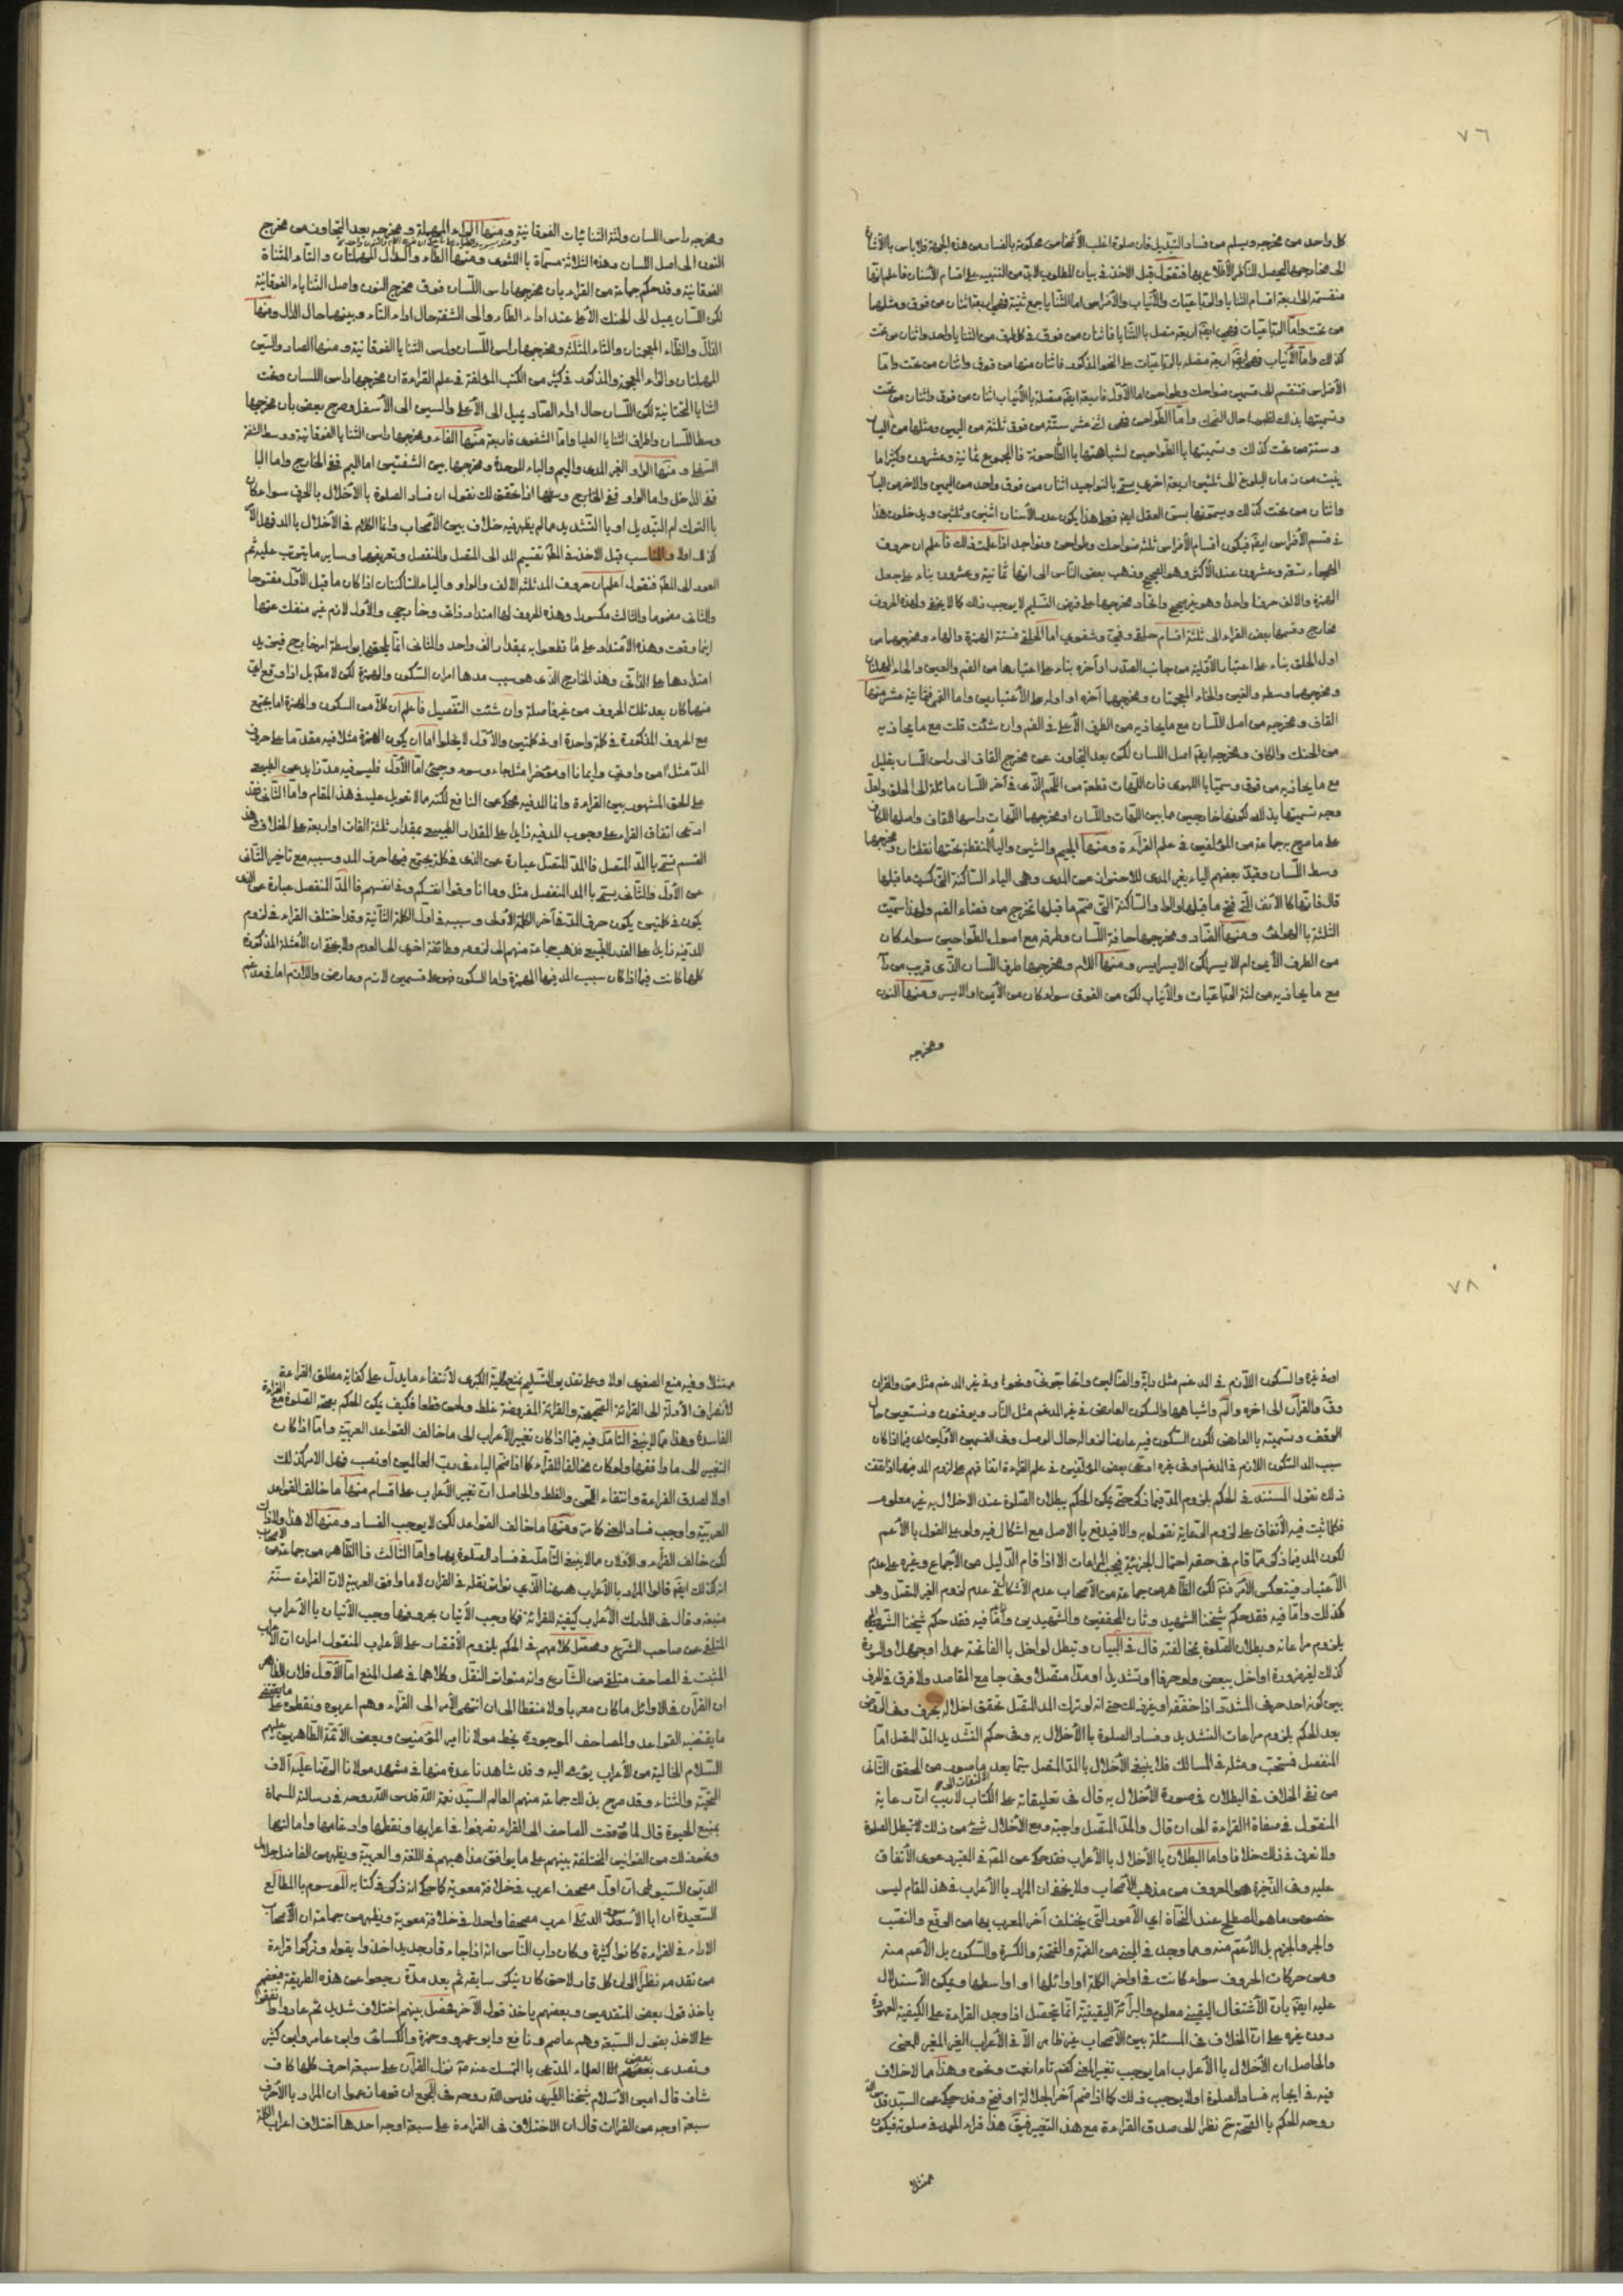 ٧٦
كل واحد من مخرجه ويسلم من فساد التبديل فان صلوة اغلب الأشخاص محكومة بالفساد من هذه الجهة فلا باس بالأشارة
الى مخارجها ليحصل للناظر الأطلاع بها فنقول قبل الاخذ في بيان المطلوب لابد من التنبيه على اقسام الأسنان فاعلم انها
منقسمة الى اربعة اقسام الثنايا والرباعيات والأنياب والأضراس اما الثنايا جمع ثنية فهى اربعة اثنان من فوق ومثلها
من تحت واما الرباعيات فهى ايضا اربعة متصل بالثنايا فاثنان من فوق في كل طرف من الثنايا واحد واثنان من تحت
كذلك واما الأنياب فهى ايضا اربعة متصلة بالرباعيات على النحو المذكور فاثنان منها من فوق واثنان من تحت واما
الأضراس فتنقسم الى قسمين ضواحك وطواحن اما الأول فاربعة ايضا متصلة بالأنياب اثنان من فوق واثنان من تحت
وتسميتها بذلك لظهورها حال الضحك واما الطواحن فهى اثنى عشر ستة من فوق ثلثة من اليمين ومثلها من اليسار
وستة من تحت كذلك وتسميتها بالطواحين لشباهتها بالطاحونة فالمجموع ثمانية وعشرون وكثيرا ما
ينبت من زمان البلوغ الى ثلثين اربعة اخرى يسمى بالنواجيد اثنان من فوق واحد من اليمين والاخر من اليسار
واثنان من تحت كذلك ويسمونها بسن العقل ايضا فعلى هذا يكون عدد الأسنان اثنين وثلثين ويدخلون هذا
في قسم الأضراس ايضا فيكون اقسام الأضراس ثلثة ضواحك وطواحن ونواجد اذا علمت ذلك فاعلم ان حروف
الهجاء تسعة وعشرون عند الأكثر وهو الصحيح وذهب بعض الناس الى انها ثمانية وعشرون بناء على جعل
الهمزة والالف حرفا واحدا وهو غير صحيح واتحاد مخرجهما على فرض التسليم لا يوجب ذلك كما لا يخفى ولهذه الحروف
مخارج وقسمها بعض القراء الى ثلثة اقسام حلقي وفمي وشفوي اما الحلقي فستة الهمزة والهاء ومخرجهما من
اول الحلق بناء على اعتبار الأقلية من جانب الصدر او آخره بناء على اعتبارها من الفم والعين والحاء المهملتان
ومخرجهما وسطه والغين والخاء المعجمتان ومخرجهما آخره او اوله على الأعتبارين واما الفمي فثمانية عشر منها
القاف ومخرجه من اصل اللسان مع ما يحاذيه من الطرف الأعلى في الفم وان شئت قلت مع ما يحاذيه
من الحنك والكاف ومخرجه ايضا اصل اللسان لكن بعد التجاوز عن مخرج القاف الى راس اللسان بقليل
مع ما يحاذيه من فوق وسميا باللهوى فان اللهات قطعة من اللحم الذي في آخر اللسان مائلة الى الحلق ولعل
وجه تسميتها بذلك لكونها خارجين مما بين اللهات واللسان او مخرجهما اللهات راسها القاف واصلها للكاف
على ما صرح به جماعة من المؤلفين في علم القرآءة ومنها الجيم والشين والياء المنقطة تحتها نقطتان ومخرجها
وسط اللسان وقيد بعضهم الياء بغير المدى للاحتراز عن المدى وهي الياء الساكنة التي كسر ما قبلها
قال فانها كالألف التي فتح ما قبلها والواو الساكنة التي ضم ما قبلها تخرج من فضاء الفم ولهذا سميت
الثلثة بالهوائي ومنها الضاد ومخرجها حافة اللسان وطرفه مع اصول الطواحين سواء كان
من الطرف الأيمن ام الايسر لكن الايسر ايسر ومنها اللام ومخرجها طرف اللسان الذي قريب من راسه
مع ما يحاذيه من لثة الرباعيات والأنياب لكن من الفوق سواء كان من الأيمن او الايسر ومنها النون
ومخرجه
ومخرجه راس اللسان ولثة الثنائيات الفوقانية ومنها الراء المهملة ومخرجه بعد التجاوز من مخرج
النون الى اصل اللسان وهذه الثلاثة مسماة باللثوى ومنها الطاء والدال المهملتان والتاء المثناة
الفوقانية وقد حكم جماعة من القراء بان مخرجها راس اللسان فوق مخرج النون واصل الثنايا الفوقانية
لكن اللسان يميل الى الحنك الأعلى عند اداء الطاء والى الشفة حال اداء التاء وبينهما حال الدال ومنها
الذال والظاء المعجمتان والثاء المثلثة ومخرجها راس اللسان وراس الثنايا الفوقانية ومنها الصاد والسين
المهملتان والزاء المعجمة والمذكور في كثير من الكتب المؤلفة في علم القراءة ان مخرجها راس اللسان وتحت
الثنايا التحتانية لكن اللسان حال اداء الصاد يميل الى الأعلى والسين الى الأسفل وصرح بعض بأن مخرجها
وسط اللسان واطراف الثنايا العليا واما الشفوى فاربعة منها الفاء ومخرجها راس الثنايا الفوقانية ووسط الشفة
السفلى ومنها الواو الغير المدى والميم والباء الموحدة ومخرجها بين الشفتين اما الميم ففي الخارج واما الباء
ففي الداخل واما الواو ففي الخارج وسطها اذا تحقق لك نقول ان فساد الصلوة بالاخلال بالحرف سواء كان
بالترك ام التبديل او بالتشديد مما لم يظهر فيه خلاف بين الأصحاب وانما الكلام في الأخلال بالمد فهل الأمر
كذلك اولا والمناسب قبل الاخذ في المطلب تقسيم المد الى المتصل والمنفصل وتعريفهما وساير ما يترتب عليه ثم
العود الى المطلب فنقول اعلم ان حروف المد ثلثة الالف والواو والياء الساكنتان اذا كان ما قبل الأول مفتوحا
والثاني مضموما والثالث مكسورا وهذه الحروف لها امتداد ذاتى وخارجي والأول لازم غير منفك عنها
اينما وقعت وهذه الأمتداد على ما قطعوا به بمقدار الف واحد والثاني انما يلحقها بواسطة امر خارج فيزيد
امتدادها على الذاتى وهذا الخارج الذي هو سبب مدها امران السكون والهمزة لكن لا مطلقا بل اذا وقع اى
منهما كان بعد تلك الحروف من غير فاصلة وان شئت التفصيل فاعلم ان كلا من السكون والهمزة اما يجتمع
مع الحروف المذكورة في كلمة واحدة او في كلمتين والأول لا يخلوا اما ان يكون الهمزة مثلا فيه مقدما على حرف
المد مثل آمن واوتي وايمانا او مؤخرا مثل جاء وسوء وجئ اما الأول فليس فيه مد زايد عن الطبيعي
على الحق المشهور بين القراءة وانما المد فيه محكى عن النافع لكنه مما لا تعويل عليه في هذا المقام واما الثاني فقد
ادعى اتفاق القراء على وجوب المد فيه زايدا على المقدار الطبيعي بمقدار ثلثة الفات او اربعة على الخلاف وهذا
القسم تسمى بالمد المتصل فالمد المتصل عبارة عن الذي في كلمة يجتمع فيها حرف المد وسببه مع تاخير الثاني
عن الأول والثاني يسمى بالمد المنفصل مثل وما انا وقوا انفسكم وفي انفسهم فالمد المنفصل عبارة عن الذى
يكون في كلمتين يكون حرف المد في آخر الكلمة الأولى وسببه في اول الكلمة الثانية وقد اختلف القراء في لزوم
المد فيه زايدا على القدر الطبيعي فذهب جماعة منهم الى لزومه وطائفة اخرى الى العدم ولا يخفى ان الأمثلة المذكورة
كلها كانت فيما اذا كان سبب المد فيها الهمزة واما السكون فهو على قسمين لازم وعارض واللازم اما في مدغم
٧٨
او في غيره والسكون اللازم في المدغم مثل دابة والضالين واتحاجوني ونحوا وفي غير المدغم مثل ص والقران
وق والقرآن الى اخره والم واشباهها والسكون العارض في غير المدغم مثل النار ويوقنون ونستعين حال
الوقف وتسميته بالعارض لكون السكون فيه عارضا لزواله حال الوصل وفي القسمين الأولين اى فيما اذا كان
سبب المد السكون اللازم في المدغم وفي غيره ادعى بعض المؤلفين في علم القراءة اتفاقهم على لزوم المد فيها اذا تحقق
ذلك نقول المستند في الحكم بلزوم المد فيما ذكر حتى يكن الحكم ببطلان الصلوة عند الاخلال به غير معلوم
فكلما ثبت فيه الأتفاق على لزوم الرعاية نقول به والا فيدفع بالاصل مع اشكال فيه ولو على القول بالأعم
لكون المد فيما ذكر مما قام في حقه احتمال الجزئية فيجب المراعات الا اذا قام الدليل من الأجماع وغيره على عدم
الأعتبار فينعكس الأمر فتم لكن الظاهر من جماعة من الأصحاب عدم الأشكال في عدم لزوم الغير المتصل وهو
كذلك واما فيه فقد حكم شيخنا الشهيد وثان المحققين والشهيدين واما فيه فقد حكم شيخنا الشهيد
بلزوم مراعاته وبطلان الصلوة بمخالفته قال في البيان وتبطل لو اخل بالفاتحة عمدا او جهلا والسورة
كذلك لغير ضرورة او اخل ببعض ولو حرفا او تشديدا او مدا متصلا وفي جامع المقاصد ولا فرق في الحرف
بين كونه احد حرفي المشدد اذا خففه او غير ذلك حتى انه لو ترك المد المتصل تحقق اخلاله بحرف وفي الروض
بعد الحكم بلزوم مراعات التشديد وفساد الصلوة بالأخلال به وفي حكم التشديد المد المتصل اما
المنفصل فمستحب ومثله في المسالك فلا ينبغى الأخلال بالمد المتصل سيما بعد ما صدر من المحقق الثاني
من نفى الخلاف في البطلان في صورة الأخلال به قال في تعليقاته على الكتاب لا ريب ان رعاية
المنقول في صفات القراءة الى ان قال والمد المتصل واجبة ومع الأخلال بشئ من ذلك لا تبطل الصلوة
ولا نعرف في ذلك خلافا واما البطلان بالأخلال بالأعراب فقد حكى عن المعتبر في المعتبر دعوى الأتفاق
عليه وفى الذخيرة هو المعروف من مذهب الأصحاب ولا يخفى ان المراد بالأعراب في هذا المقام ليس
خصوص ما هو المصطلح عند النحاة اي الأمور التي يختلف آخر المعرب بها من الرفع والنصب
والجر والجزم بل الأعم منه ومما وجد في المبنى من الضمة والفتحة والكسرة والسكون بل الأعم منه
ومن حركات الحروف سواء كانت في اواخر الكلمة او اوائلها او اواسطها ويمكن الأستدلال
عليه ايضا بان الأشتغال اليقيني معلوم والبرآئة اليقينية انما يتحصل اذا وجد القراءة على الكيفية المعهودة
دون غيره على ان الخلاف في المسئلة بين الأصحاب غير ظاهر الا في الأعراب الغير المغير للمعنى
والحاصل ان الأخلال بالأعراب اما يوجب تغير المعنى كضم تاء انعمت ونحوه وهذا مما لا خلاف
فيه في ايجابه فساد الصلوة اولا يوجب ذلك كما اذا ضم آخر الجلالة او فتح وقد حكى عن السيد قدس الله
روحه الحكم بالصحة ح نظرا الى صدق القراءة مع هذا التغيير فيق هذا قراء الحمد في صلوته فيكون
ممتثلا
ممتثلا وفيه منع الصغرى اولا وعلى تقدير التسليم نمنع كلية الكبرى لأنتفاء ما يدل على كفاية مطلق القراءة
لأنصراف الأدلة الى القرائة الصحيحة والقراءة المفروضة غلط ولحن قطعا فكيف يمكن الحكم بصحة الصلوة مع القراءة
الفاسدة وهذا مما لا ينبغى التأمل فيه فيما اذا كان تغيير الأعراب الى ما خالف القواعد العربية واما اذا كان
التغيير الى ما وافقها ولو كان مخالفا للقراء كما اذا ضم الباء في رب العالمين او نصب فهل الامر كذلك
اولا لصدق القراءة وانتفاء اللحن والغلط والحاصل ان تغيير الأعراب على اقسام منها ما خالف القواعد
العربية واوجب فساد المعنى كما مر ومنها ما خالف القواعد لكن لا يوجب الفساد ومنها لا هذا ولا ذاك
لكن خالف القراء والأولان مما لا ينبغى التأمل في فساد الصلوة بهما واما الثالث فالظاهر من جماعة من الاصحاب
انه كذلك ايضا قالوا المراد بالأعراب ههنا الذي تواتر نقله في القران لا ما وافق العربية لان القراءة سنة
متبعة وقال في المدارك الأعراب كيفية للقرائة فكما وجب الأتيان بحروفها وجب الأتيان بالأعراب
المتلقى عن صاحب الشرع ومحصل كلامهم في الحكم بلزوم الأقتصار على الأعراب المنقول امران ان الأعراب
المثبت في المصاحف متلقى من الشارع وانه متواتر النقل وكلاهما في محل المنع اما الأول فلان الظاهر
ان القرآن في الاوائل ما كان معربا ولا منقطا الى ان انتهى الأمر الى القراء وهم اعربوه ونقطوه على
ما يقتضيه القواعد والمصاحف الموجودة بخط مولانا امير المؤمنين وبعض الأئمة الطاهرين عليهم
السلام الخالية من الأعراب يؤمى اليه وقد شاهدنا عدة منها في مشهد مولانا الرضا عليه آلاف
التحية والثناء وقد صرح بذلك جماعة منهم العالم السيد نعمة الله قدس الله روحه في رسالته المسماة
بمنبع الحيوة قال لما وقعت المصاحف الى القراء تصرفوا في اعرابها ونقطها وادغامها وامالتها
ونحو ذلك من القوانين المختلفة بينهم على ما يوافق مذاهبهم في اللغة والعربية ويظهر من الفاضل جلال
الدين السيوطي ان اول مصحف اعرب في خلافة معوية كما حكى انه ذكر في كتابه الموسوم بالمطالع
السعيدة ان ابا الأسود الدئلى اعرب مصحفا واحدا في خلافة معوية ويظهر من جماعة ان الأصحاب
الاراء في القراءة كانوا كثيرة وكان داب الناس انه اذا جاء قار جديد اخذوا بقوله وتركوا قراءة
من تقدمه نظرا الى ان كل قار لاحق كان ينكر سابقه ثم بعد مدة رجعوا عن هذه الطريقة فبعضهم
ياخذ قول بعض المتقدمين وبعضهم ياخذ قول الآخر فحصل بينهم اختلاف شديد ثم عادوا واتفقوا
على الاخذ بقول السبعة وهم عاصم ونافع وابو عمرو وحمزة والكسائى وابن عامر وابن كثير
وتصدى بعض العلماء المدعى بالتمسك عنه ص نزل القرآن على سبعة احرف كلها كاف
شاف قال امين الأسلام شيخنا الطبرسى قدس الله روحه في المجمع ان قوما زعموا ان المراد بالأحرف
سبعة اوجه من القرات قال ان الاختلاف في القراءة على سبعة اوجه احدها اختلاف اعراب الكلمة